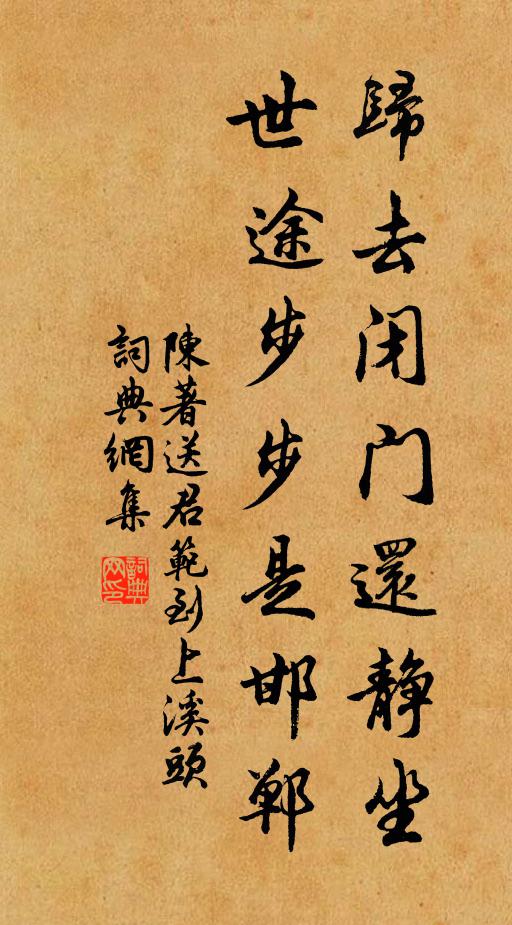 歸去閉門還靜坐
世途步步是邯鄲
陳著送君範到上溪頭
詞典網集
詞典网印